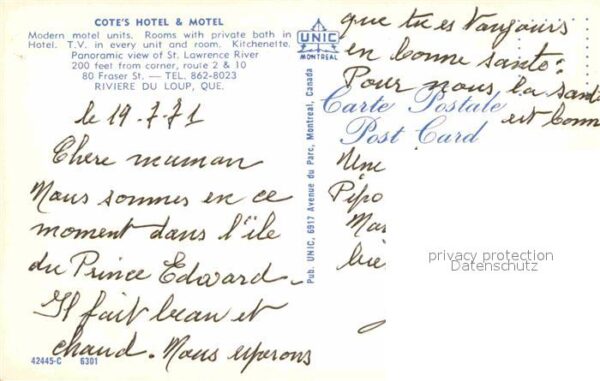 COTE'S HOTEL & MOTEL
Modern motel units. Rooms with private bath in
Hotel. T.V. in every unit and room. Kitchenette.
Panoramic view of St. Lawrence River
200 feet from corner, route 2 & 10
80 Fraser St. — TEL. 862-8023
RIVIERE DU LOUP, QUE.
le 19-7-71
Chère maman
Nous sommes en ce
moment dans l'île
du Prince Edward.
Il fait beau et
chaud. Nous esperons
42445-C 6301
UNIC
MONTREAL
Pub. UNIC, 6917 Avenue du Parc, Montreal, Canada
que tu es toujours
en bonne santé.
Pour nous la santé
est bonne
Carte Postale
Post Card
privacy protection
Datenschutz